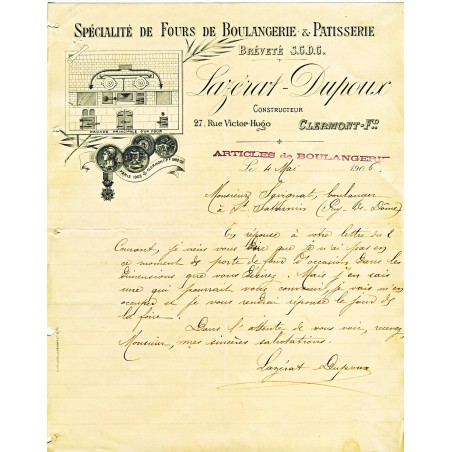 SPÉCIALITÉ DE FOURS DE BOULANGERIE & PATISSERIE
BRÉVETÉ S.G.D.G.
Lazérat-Dupoux
CONSTRUCTEUR
27, RUE VICTOR-HUGO CLERMONT-FD
FAÇADE PRINCIPALE D'UN FOUR
PARIS 1902 CLERMONT-FD
ARTICLES de BOULANGERIE
Le 4 Mai 1906.
Monsieur, boulanger
à St Saturnin (Puy-de-Dôme)
En réponse à votre lettre du
Courant, je viens vous dire que je n'ai pas en
ce moment de porte de four d'occasion dans les
dimensions que vous. Mais j'en sais
une qui pourrait vous convenir, je vais m'en
occuper et je vous rendrai réponse le jour de
la foire.
Dans l'attente de vous voir, recevez,
Monsieur, mes sincères salutations.
Lazérat Dupoux